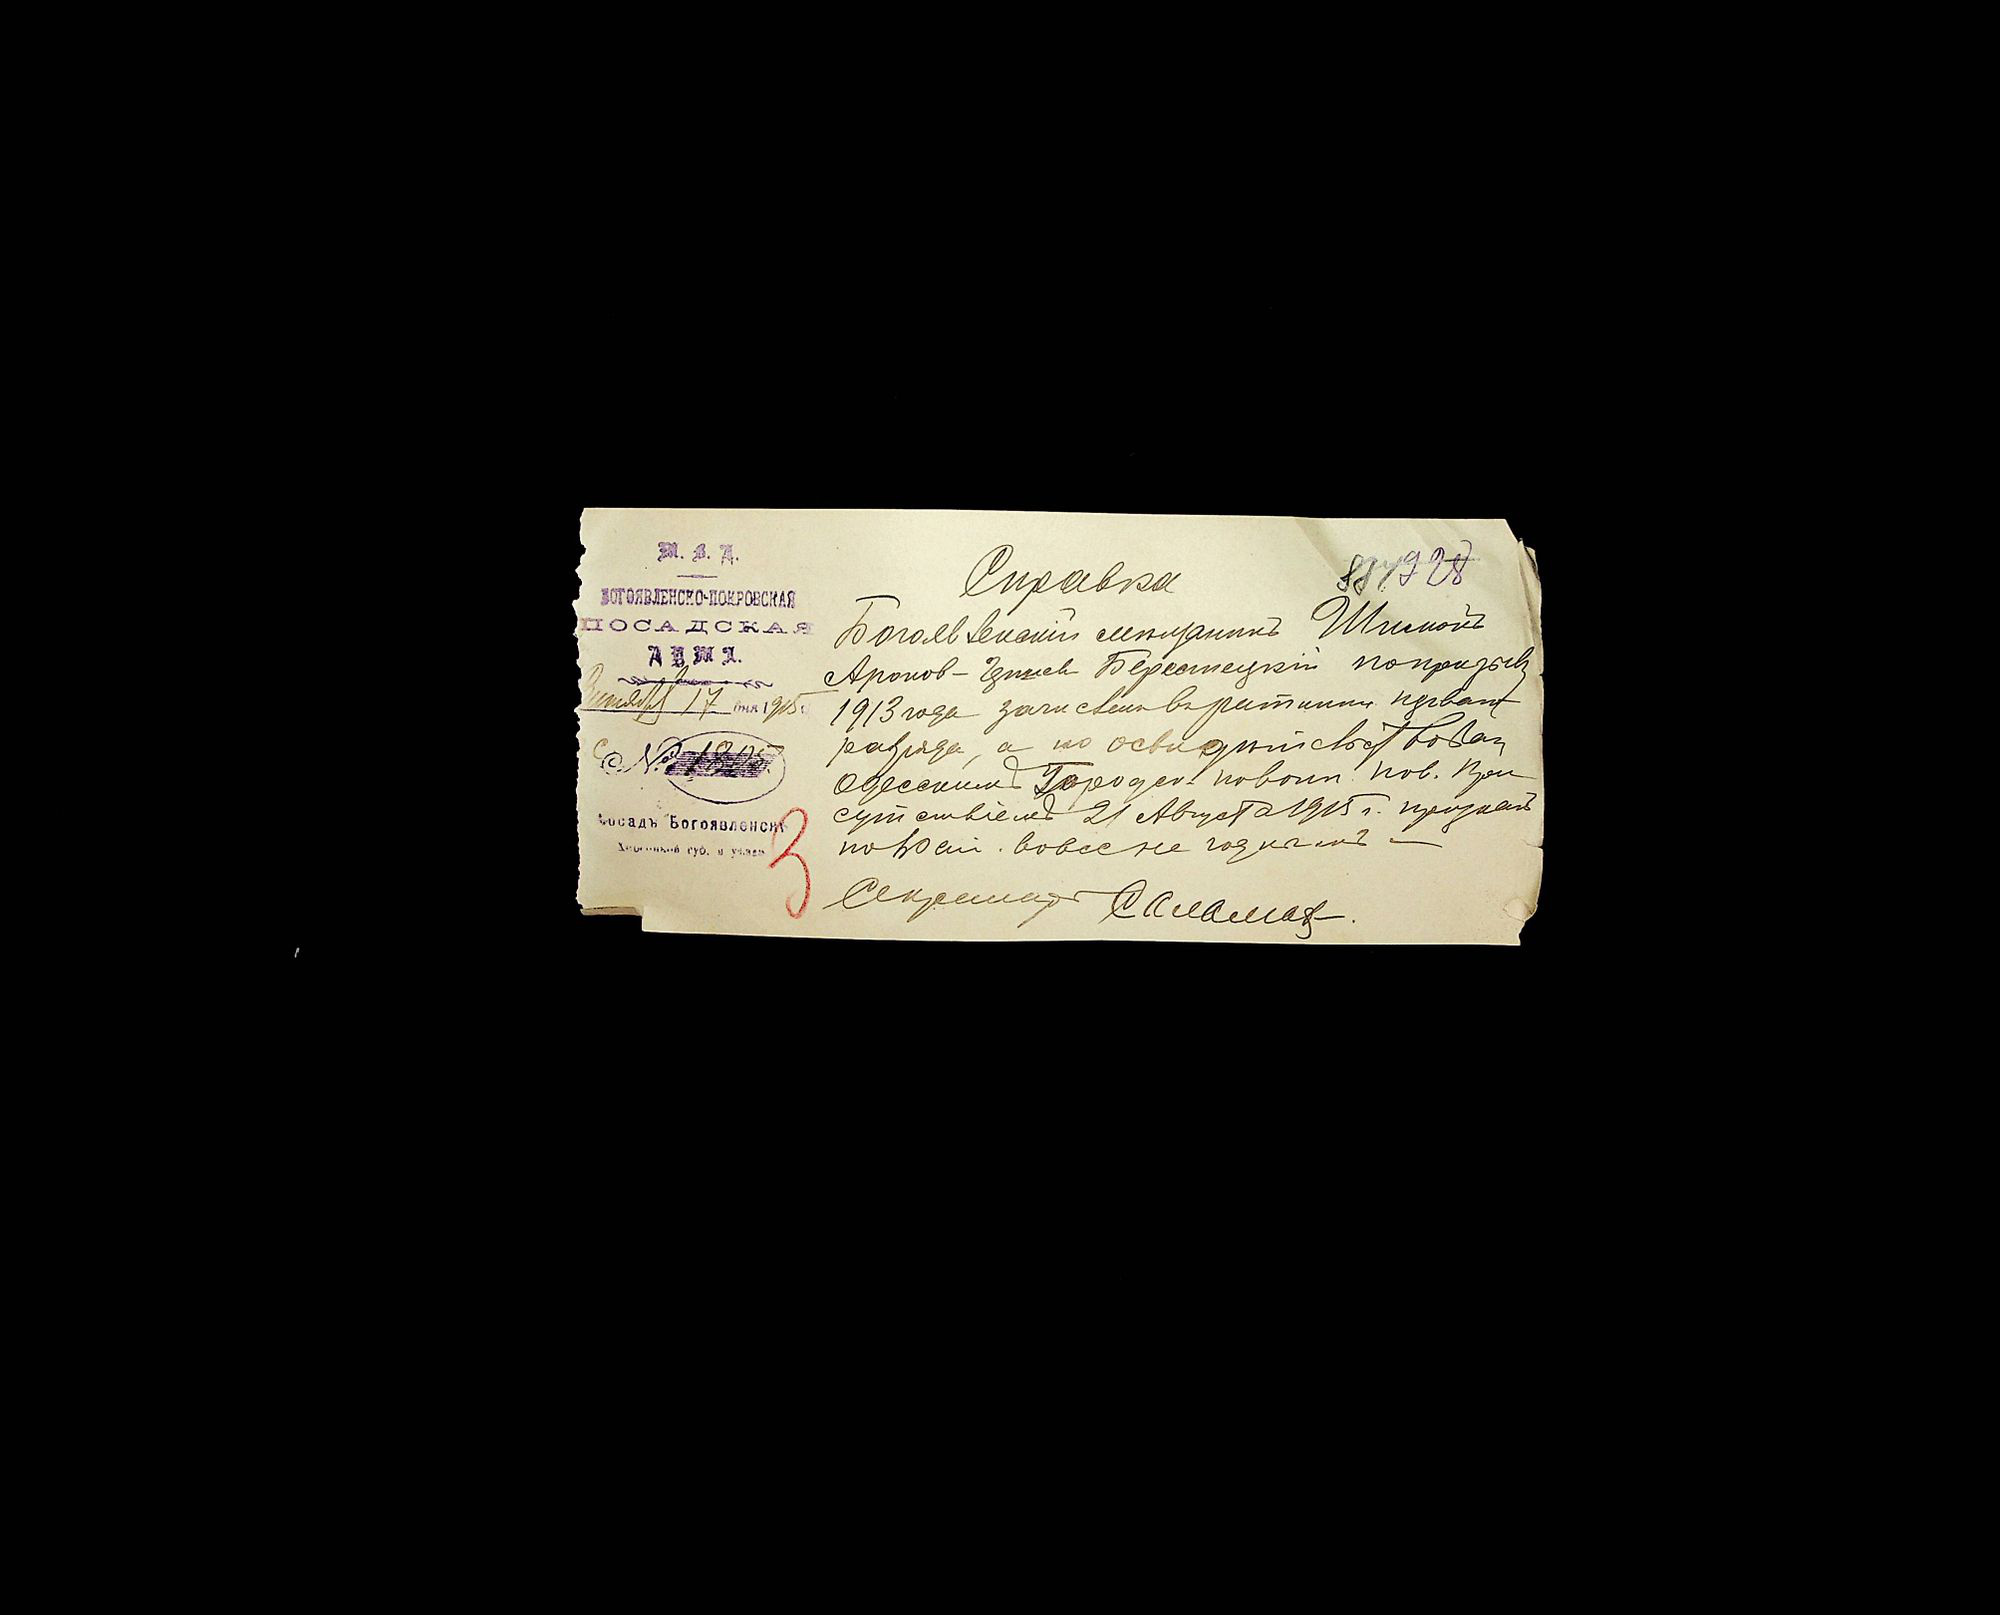 М. В. Д.
БОГОЯВЛЕНСКО-ПОКРОВСКАЯ
ПОСАДСКАЯ
17 дня 1915 г.
№ 1305
Посадъ Богоявленскъ
Херсонской губ. и уѣзда
3
928
Справка
Богоявленскій мещанинъ Шимонъ
Аронов- Берестецкій по призыву
1913 года зачисленъ въ ратники первого
разряда, а по освидѣтельствован
Одесскимъ Городск. по воин. пов. При
сутствіемъ 21 Августа 1915 г. признанъ
по воен. вовсе не годнымъ —
Секретарь